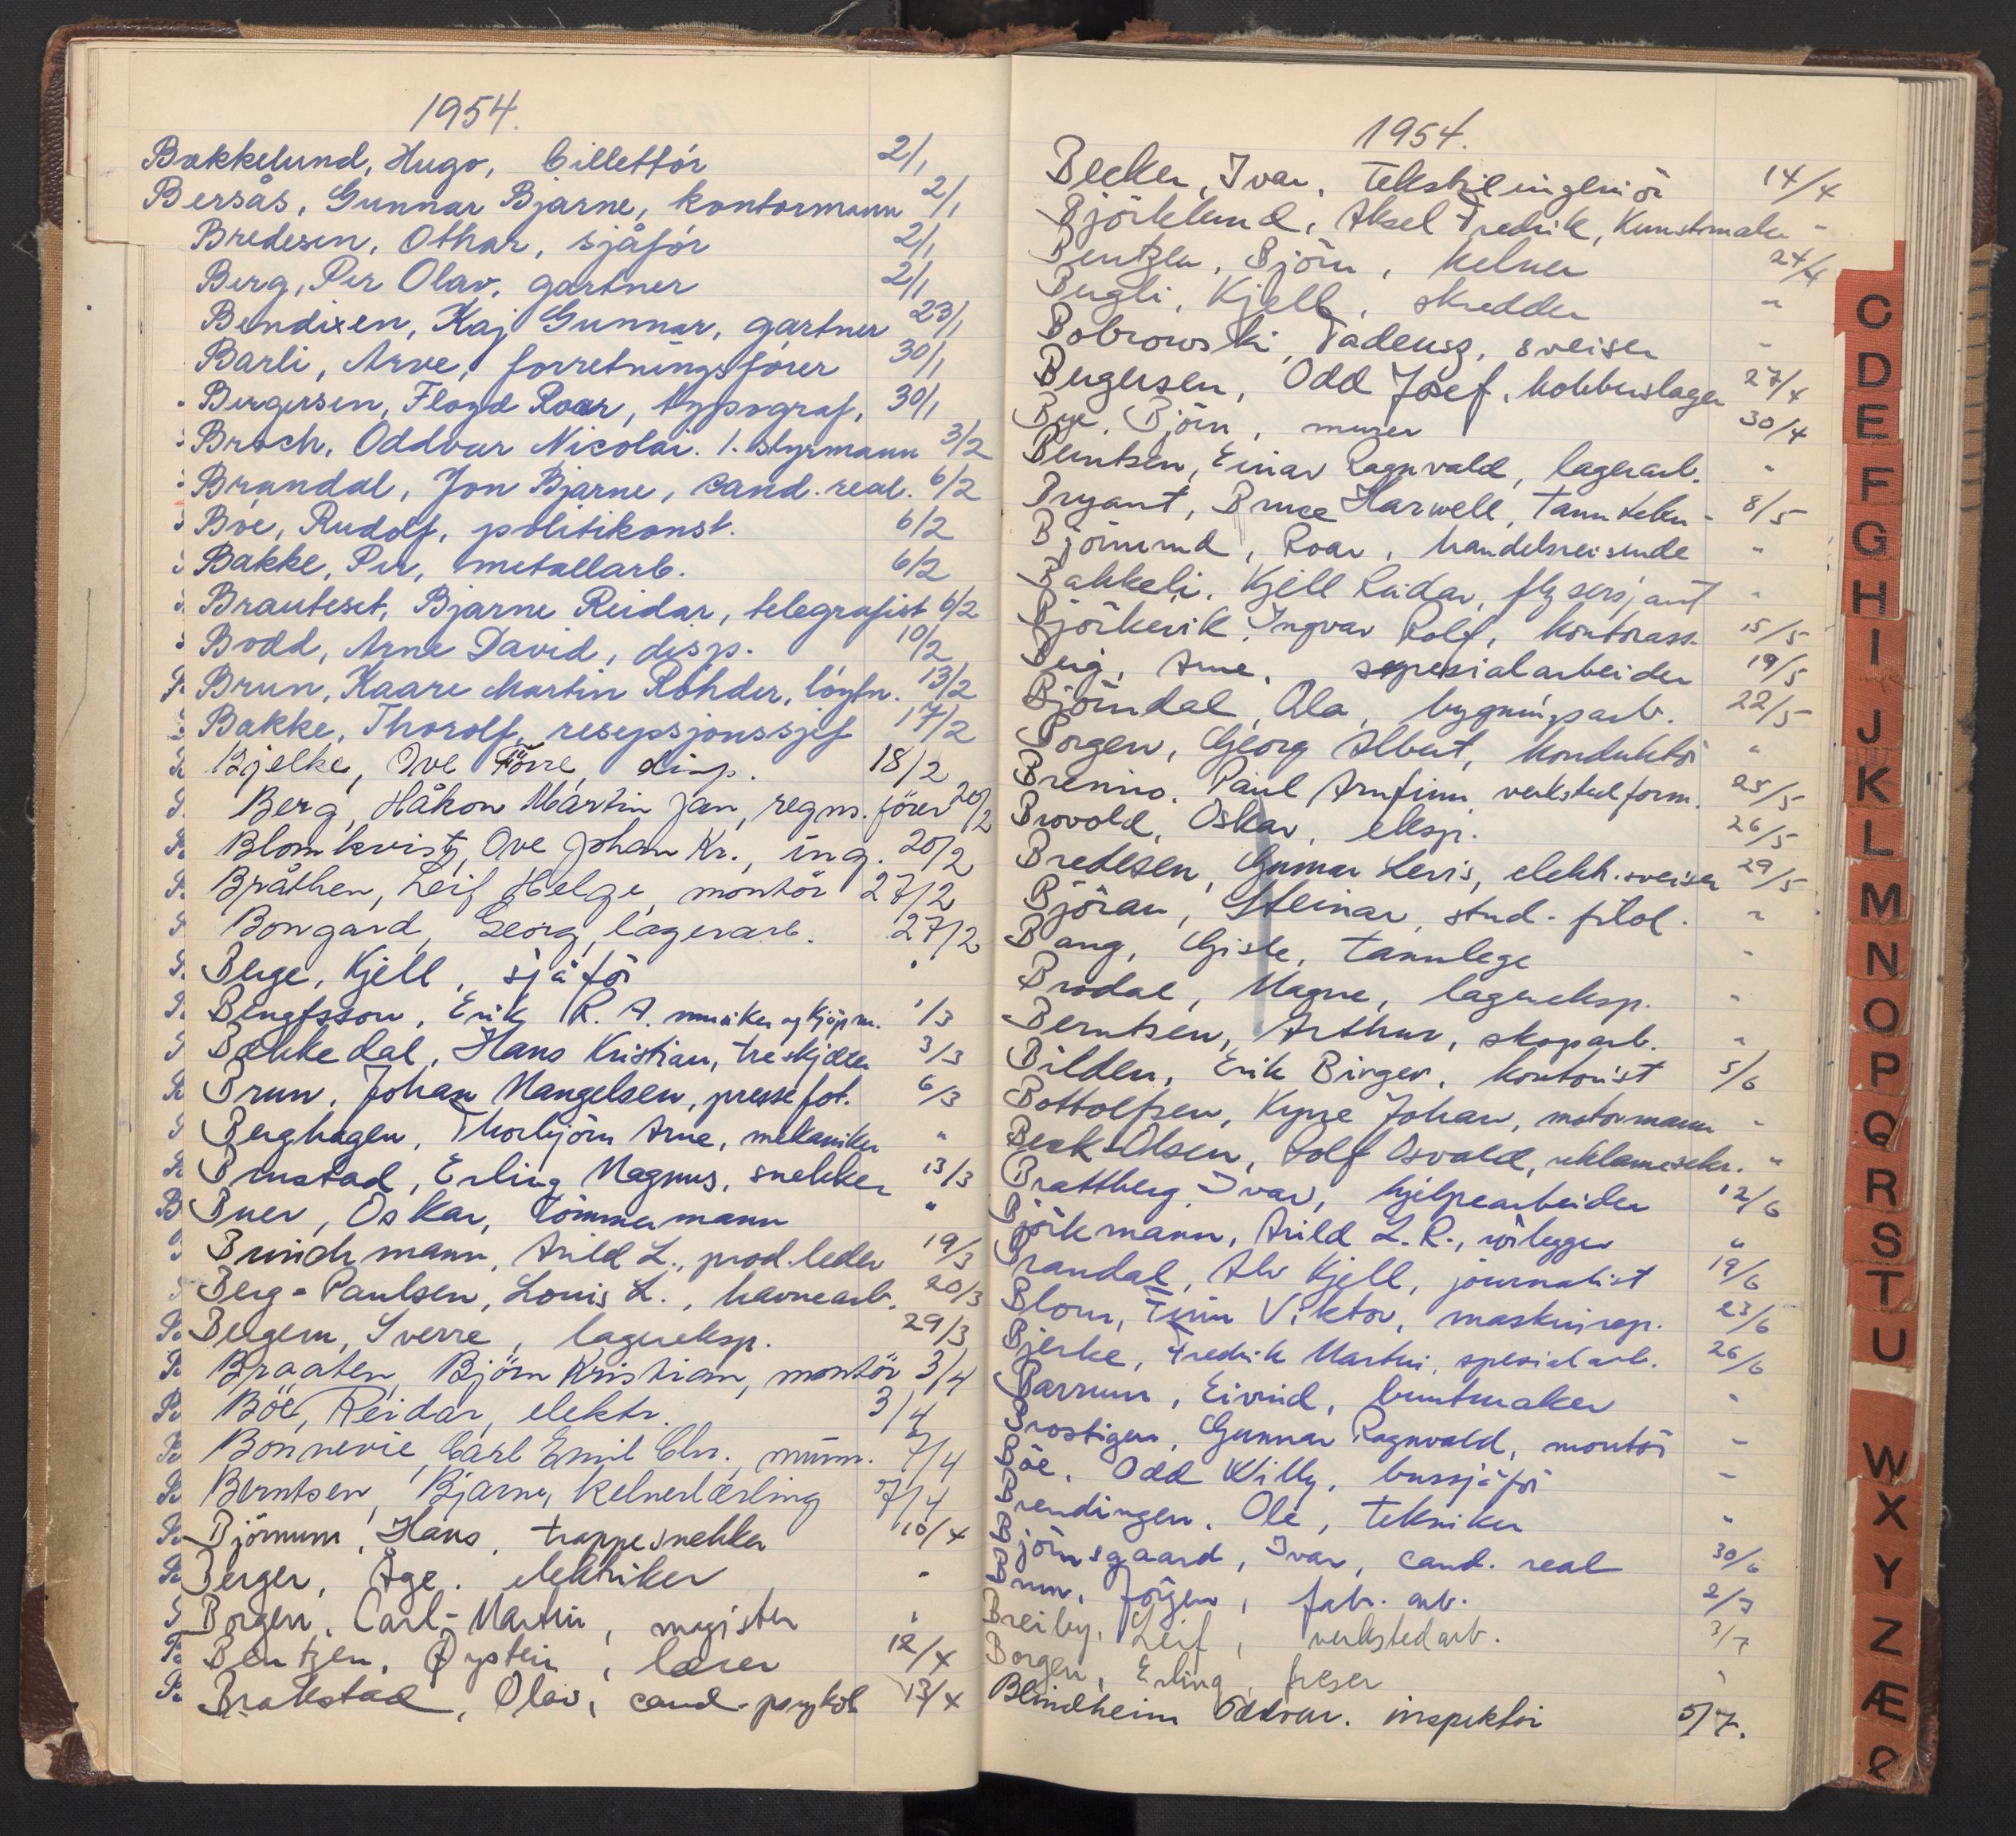 1954.
Bakkelund, Hugo, billettör 2/1
Bersås, Gunnar Bjarne, kontormann 2/1
Bredesen, Othar, sjåför 2/1
Berg, Per Olav, gartner 2/1
Bendixen, Kaj Gunnar, gartner 23/1
Barli, Arve, forretningsförer 30/1
Bergersen, Floyd Roar, typograf, 30/1
Broch, Oddvar Nicolai. 1. styrmann 3/2
Brandal, Jon Bjarne, cand. real. 6/2
Böe, Rudolf, politikonst. 6/2
Bakke, Per, metallarb. 6/2
Brauteset, Bjarne Reidar, telegrafist 6/2
Bodd, Arne David, disp. 10/2
Brun, Kaare Martin Röhder, löytn. 13/2
Bakke, Thorolf, resepsjonssjef 17/2
Bjelke, Ove Förre, disp. 18/2
Berg, Håkon Martin Jan, regns.förer 20/2
Blomkvist, Ove Johan Kr., ing. 20/2
Bråthen, Leif Helge, montör 27/2
Bongard, Georg, lagerarb. 27/2
Berge, Kjell, sjåför "
Bengtsson, Erik R. A. musiker og kjöpm. 1/3
Bækkedal, Hans Kristian, treskjærer 3/3
Brun, Johan Mangelsen, presse fot. 6/3
Berghagen, Thorbjörn Arne, mekaniker "
Brustad, Erling Magnus, snekker 13/3
Buer, Oskar, tömmermann "
Brinchmann, Arild L., prod.leder 19/3
Berg-Paulsen, Louis L., havnearb. 20/3
Bergem, Sverre, lagereksp. 29/3
Braaten, Björn Kristian, montör 3/4
Böe, Reidar, elektr. 3/4
Bonnevie, Carl Emil Chr., 7/4
Berntsen, Bjarne, kelnerlærling 7/4
Björnum, Hans, trappesnekker 10/4
Berger, Åge. elektriker "
Borgen, Carl-Martin, magister "
Bentzen, Øystein, lærer 12/4
Brakstad, Olav, cand. psykol 13/4
1954.
Becker, Ivar, Tekstilingeniör 14/4
Björklund, Aksel Fredrik, Kunstmaler "
Bentzen, Björn, kelner 24/4
Bugli, Kjell, skredder "
Bobrowski, Tadeusz, sveiser "
Bergersen, Odd Josef, kobberslager 27/4
Bye, Björn, murer 30/4
Berntsen, Einar Ragnvald, lagerarb. "
Bryant, Bruce Harwell, Tanntekn - 8/5
Björnerud, Roar, handelsreisende "
Bakkeli, Kjell Reidar, flysersjant "
Björkevik, Ingvar Rolf, kontorass. 15/5
Berg, Arne, spesialarbeider 19/5
Björndal, Ola, bygningsarb. 22/5
Borgen, Georg Albert, konduktör "
Brenno, Paul Arnfinn, verkstedform. 25/5
Brovold, Oskar, eksp. 26/5
Bredesen, Gunnar Levis, elektr. sveiser 29/5
Björan, Steinar, stud. filol. "
Bang, Gisle, tannlege "
Brodal, Magne, lagereksp. "
Berntsen, Arthur, skoparb. "
Bilden, Erik Birger, kontorist 5/6
Bottolfsen, Kyrre Johan, motormann "
Beck-Olsen, Rolf Osvald, reklamesekr. "
Brattberg, Ivar, hjelpearbeider 12/6
Björkmann, Arild L. R., rörlegger "
Brandal, Alv Kjell, journalist 19/6
Blom, Finn Viktor, maskinrep. 23/6
Bjerke, Fredrik Martin, spesialarb. 26/6
Barrum, Eivind, buntmaker "
Brostigen, Gunnar Ragnvald, montör "
Böe, Odd Willy, bussjåför "
Brendingen, Ole, Tekniker "
Björnsgaard, Ivar, cand. real 30/6
Brun, Jörgen, fabr. arb. 2/7
Breiby, Leif, verkstedarb. 3/7
Borgen, Erling, freser "
Blindheim Oddvar. inspektör 5/7.
C
D
E
F
G
H
I
J
K
L
M
N
O
P
Q
R
S
T
U
W
X
Y
Z
Æ